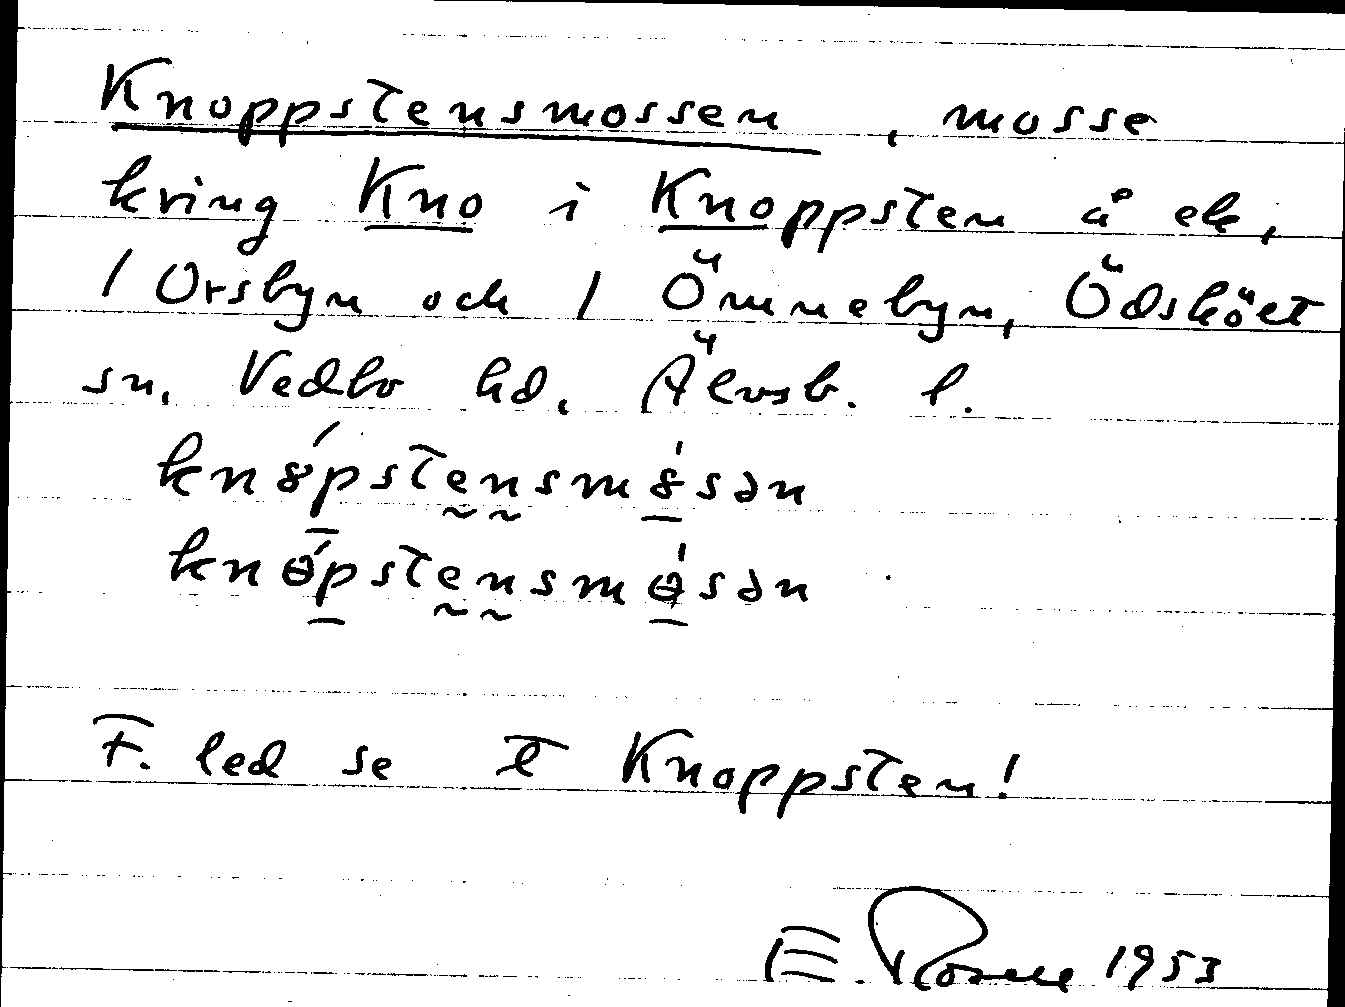 Knoppstensmossen, mosse
kring Kno i Knoppsten å ek,
1 Orsbyn och 1 Ömmebyn, Ödsköet
sn, Vedbo hd, Älvsb. l.
kn8́pstensm8́sən
knɵ́pstensmɵ́sən
F. led se Knoppsten!
E. 1953